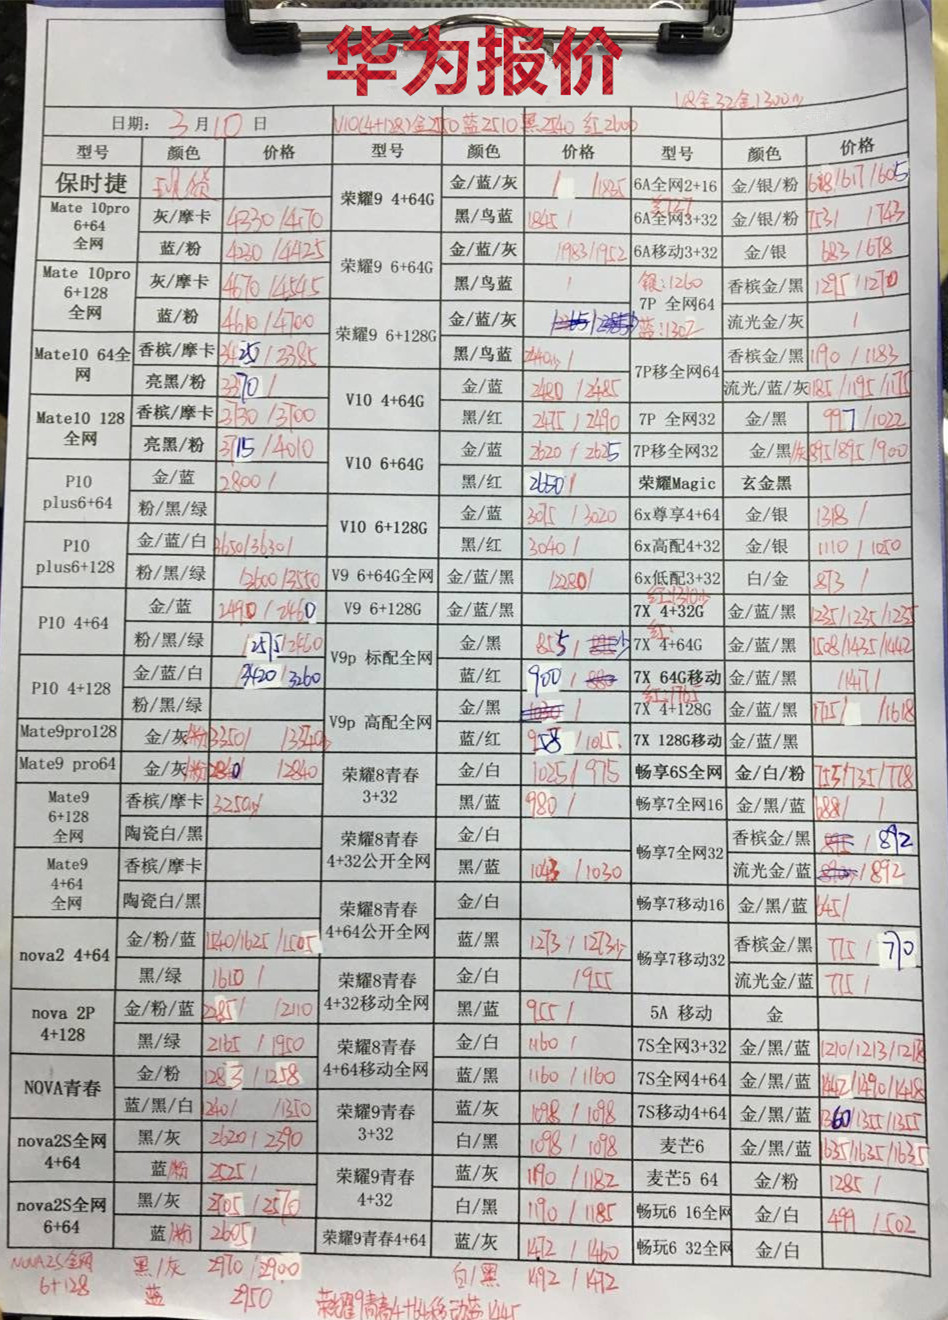 华为报价
V8金32金1300
日期： 3 月 10 日 V10(4+128)金2550 蓝2510 黑2540 红2600
型号 颜色 价格 型号 颜色 价格 型号 颜色 价格
保时捷 现货 荣耀9 4+64G 金/蓝/灰 / /1835 6A全网2+16 金/银/粉 618/617/1605
Mate 10pro 6+64 全网 灰/摩卡 4330/4170 黑/鸟蓝 1845/ 6A全网3+32 金/银/粉 /743
蓝/粉 4230/4425 荣耀9 6+64G 金/蓝/灰 1983/1952 6A移动3+32 金/银 683/678
Mate 10pro 6+128 全网 灰/摩卡 4670/4545 黑/鸟蓝 / 银:1260 7P 全网64 香槟金/黑 1295/1270
蓝/粉 4610/4700 荣耀9 6+128G 金/蓝/灰 蓝:1302 流光金/灰 /
Mate10 64全网 香槟/摩卡 3425/3385 黑/鸟蓝 7P移全网64 香槟金/黑 1190/1183
亮黑/粉 3370/ V10 4+64G 金/蓝 2480/2485 流光/蓝/灰 1185/1195/1175
Mate10 128 全网 香槟/摩卡 3730/3700 黑/红 2475/2490 7P 全网32 金/黑 997/1022
亮黑/粉 3715/4010 V10 6+64G 金/蓝 2620/2625 7P移全网32 金/黑/灰 895/895/900
P10 plus6+64 金/蓝 2800/ 黑/红 2650/ 荣耀Magic 玄金黑
粉/黑/绿 V10 6+128G 金/蓝 3075/3020 6x尊享4+64 金/银 1318/
P10 plus6+128 金/蓝/白 3650/3630/ 黑/红 3040/ 6x高配4+32 金/银 1110/1050
粉/黑/绿 /2600/3550 V9 6+64G全网 金/蓝/黑 /2280/ 6x低配3+32 白/金 873/
P10 4+64 金/蓝 2490/2460 V9 6+128G 金/蓝/黑 红:1310 7X 4+32G 金/蓝/黑 1235/1235/1235
粉/黑/绿 /2575/2460 V9p 标配全网 金/黑 855/ 红: 7X 4+64G 金/蓝/黑 1508/1435/1442
P10 4+128 金/蓝/白 3420/3260 蓝/红 900/ 7X 64G移动 金/蓝/黑 /1417/
粉/黑/绿 V9p 高配全网 金/黑 / 红:1765 7X 4+128G 金/蓝/黑 1715/ /1618
Mate9pro128 金/灰/粉 3350/ /3340 蓝/红 958/1015 7X 128G移动 金/蓝/黑
Mate9 pro64 金/灰/粉 2840 /2840 荣耀8青春 3+32 金/白 1025/975 畅享6S全网 金/白/粉 755/735/778
Mate9 6+128 全网 香槟/摩卡 3250 黑/蓝 980/ 畅享7全网16 金/黑/蓝 688/ /
陶瓷白/黑 荣耀8青春 4+32公开全网 金/白 畅享7全网32 香槟金/黑 /892
Mate9 4+64 全网 香槟/摩卡 黑/蓝 1043/1030 流光金/蓝 /892
陶瓷白/黑 荣耀8青春 4+64公开全网 金/白 畅享7移动16 金/黑/蓝 645/
nova2 4+64 金/粉/蓝 1540/1625/1505 蓝/黑 1273/1273 畅享7移动32 香槟金/黑 775/770
黑/绿 1610/ 荣耀8青春 4+32移动全网 金/白 /955 流光金/蓝 775/
nova 2P 4+128 金/粉/蓝 2285/ /2110 黑/蓝 955/ 5A 移动 金
黑/绿 2165/1950 荣耀8青春 4+64移动全网 金/白 1160/ 7S全网3+32 金/黑/蓝 1210/1213/1218
NOVA青春 金/粉 1283/1258 蓝/黑 1160/1160 7S全网4+64 金/黑/蓝 1442/1490/1418
蓝/黑/白 1240/ /1350 荣耀9青春 3+32 蓝/灰 1098/1098 7S移动4+64 金/黑/蓝 1360/1355/1355
nova2S全网 4+64 黑/灰 2620/2390 白/黑 1098/1098 麦芒6 金/黑/蓝 1635/1635/1635
蓝/粉 2525/ 荣耀9青春 4+32 蓝/灰 1190/1182 麦芒5 64 金/粉 1285/
nova2S全网 6+64 黑/灰 2705/2570 白/黑 1190/1185 畅玩6 16全网 金/白 499/502
蓝/粉 2605/ 荣耀9青春4+64 蓝/灰 1472/1460 畅玩6 32全网 金/白
NOVA2S全网 6+128 黑/灰 2970/2900 白/黑 1492/1472
蓝 2950 荣耀9青春4+64移动蓝1445